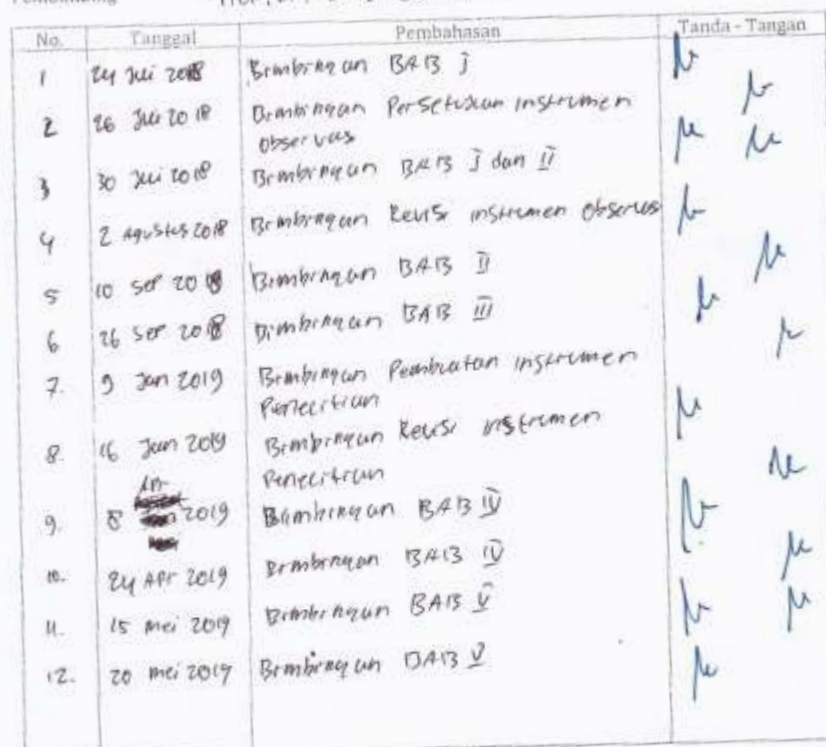 No. Tanggal Pembahasan Tanda - Tangan
1 24 Juli 2018 Bimbingan BAB I
2 26 Juli 2018 Bimbingan Persetujuan instrumen
observas
3 30 Juli 2018 Bimbingan BAB I dan II
4 2 Agustus 2018 Bimbingan Revisi instrumen observas
5 10 Sep 2018 Bimbingan BAB II
6 26 Sep 2018 Bimbingan BAB III
7. 9 Jan 2019 Bimbingan Pembuatan instrumen
Penelitian
8. 16 Jan 2019 Bimbingan Revisi instrumen
Penelitian
9. 8 2019 Bimbingan BAB IV
10. 24 Apr 2019 Bimbingan BAB IV
11. 15 mei 2019 Bimbingan BAB V
12. 20 mei 2019 Bimbingan BAB V